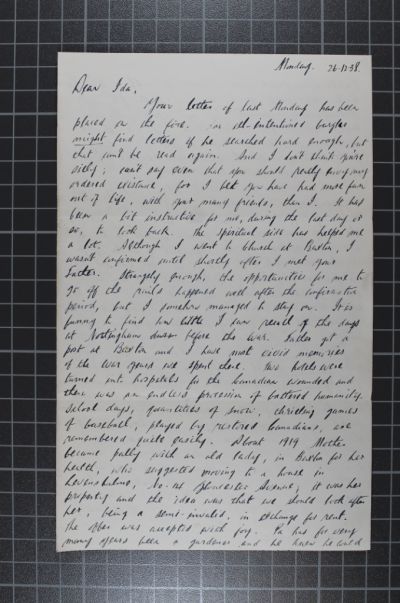 Monday. 26.12.38.
Dear Ida,
Your letter of last Monday has been
placed on the fire. An ill-intentioned burglar
might find letters if he searched hard enough, but
that won't be read again. And I don't think you're
silly; can't say even that you should really envy my
ordered existence, for I bet you have had more fun
out of life, with your many friends, than I. It has
been a bit instructive for me, during the last day or
so, to look back. The spiritual side has helped me
a lot. Although I went to Church at Buxton, I
wasn't confirmed until shortly after I met your
Father. Strangely enough, the opportunities for me to
go off the rails happened well after the confirmation
period, but I somehow managed to stay on. It is
funny to find how little I can recall of the days
at Nottingham down before the war. Father got a
post at Buxton and I have most vivid memories
of the War years we spent there. Two hotels were
turned into hospitals for the Canadian wounded and
there was an endless procession of battered humanity.
School days, quantities of snow, exciting games
of baseball, played by restored Canadians, are
remembered quite easily. About 1919 Mother
became pally with an old lady, in Buxton for her
health, who suggested moving to a house in
Levenshulme, Gloucester Avenue; it was her
property and the idea was that we should look after
her, being a semi-invalid, in exchange for rent.
The offer was accepted with joy. Pa has for very
many years been a gardener and he knew he could